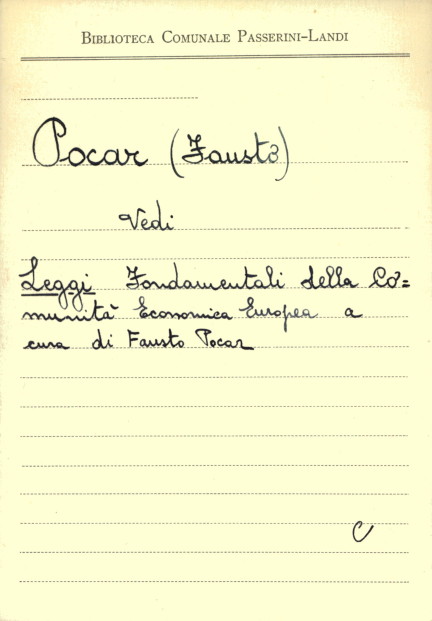 BIBLIOTECA COMUNALE PASSERINI-LANDI
Pocar (Fausto)
Vedi
Leggi Fondamentali della Co=
munità Economica Europea a
cura di Fausto Pocar
C